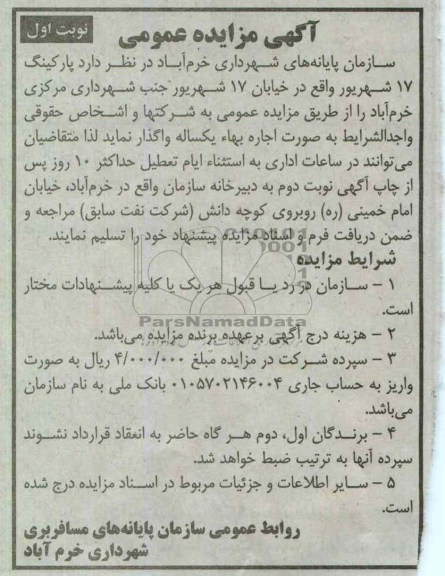 نوبت اول
آگهی مزایده عمومی
سـازمان پایانه‌های شـهرداری خرم‌آبـاد در نظـر دارد پارکینگ
۱۷ شـهریور واقع در خیابان ۱۷ شـهریور جنب شهرداری مرکزی
خرم‌آباد را از طریق مزایده عمومی به شـرکتها و اشـخاص حقوقی
واجدالشرایط به صورت اجاره بهاء یکساله واگذار نماید لذا متقاضیان
می‌توانند در ساعات اداری به استثناء ایام تعطیل حداکثر ۱۰ روز پس
از چاپ آگهی نوبت دوم به دبیرخانه سازمان واقع در خرم‌آباد، خیابان
امام خمینی (ره) روبروی کوچه دانش (شرکت نفت سابق) مراجعه و
ضمن دریافت فرم و اسناد مزایده پیشنهاد خود را تسلیم نمایند.
شرایط مزایده
۱ – سـازمان در رد یـا قبول هر یک یا کلیه پیشـنهادات مختار
است.
ParsNamadData
۲ – هزینه درج آگهی برعهده برنده مزایده می‌باشد.
۳ – سپرده شـرکت در مزایده مبلغ ۴/۰۰۰/۰۰۰ ریال به صورت
واریز به حساب جاری ۰۱۰۵۷۰۲۱۴۶۰۰۴ بانک ملی به نام سازمان
می‌باشد.
۴ – برنـدگان اول، دوم هـر گاه حاضر به انعقاد قرارداد نشـوند
سپرده آنها به ترتیب ضبط خواهد شد.
۵ – سـایر اطلاعات و جزئیات مربوط در اسـناد مزایده درج شده
است.
روابط عمومی سازمان پایانه‌های مسافربری
شهرداری خرم آباد